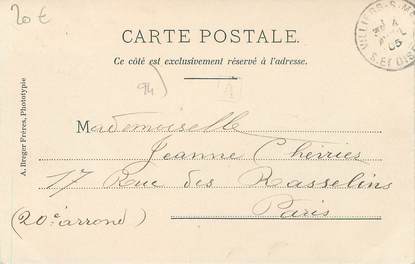 20€
CARTE POSTALE.
Ce côté est exclusivement réservé à l'adresse.
94
A. Breger Frères, Phototypie
VILLIERS-S-MA
4
05
S. ET OISE
Mademoiselle
Jeanne Cherries
17 Rue des Rasselins
Paris
(20e arrond)